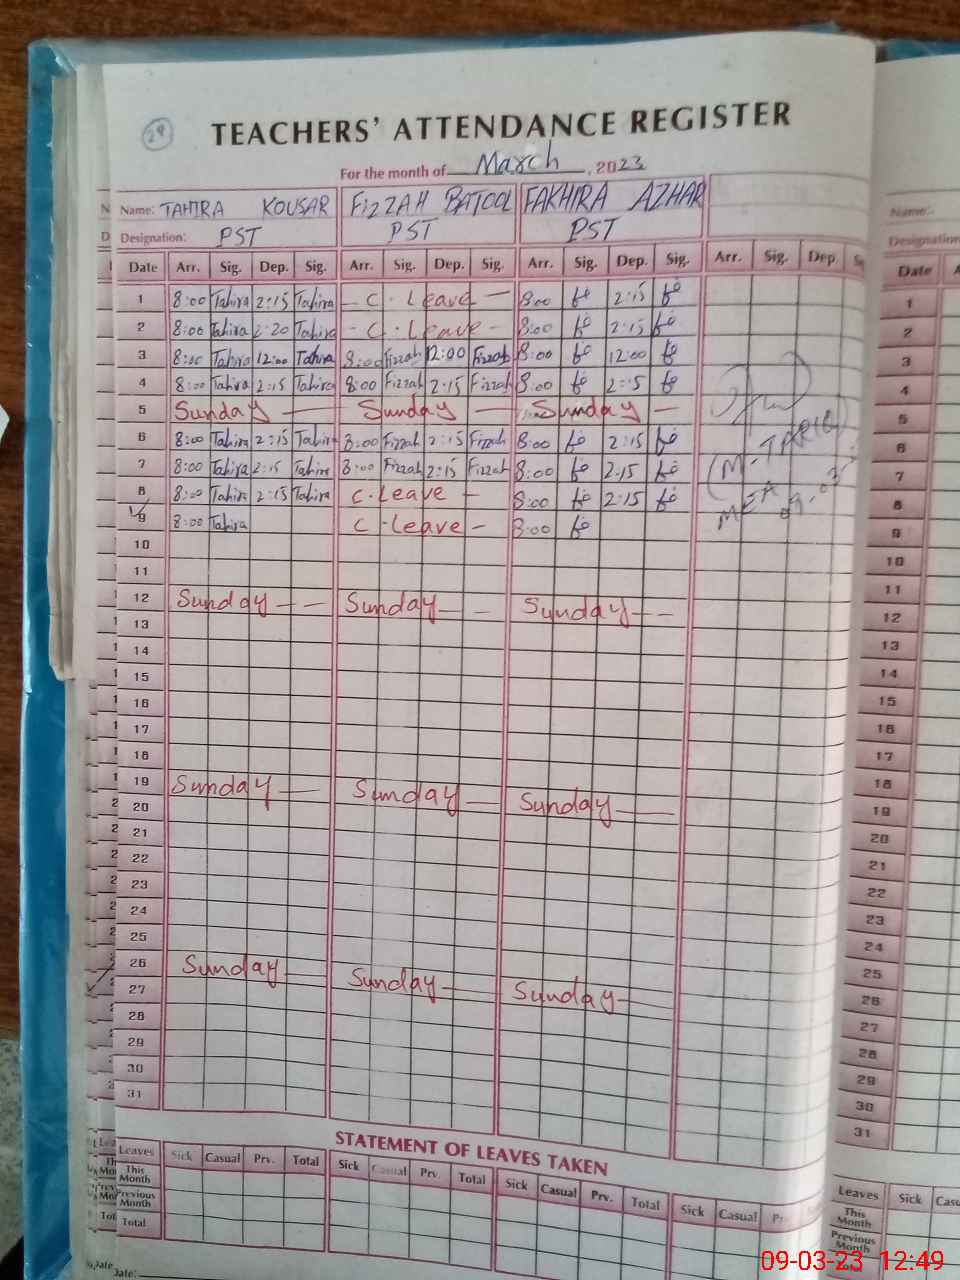 29
TEACHERS' ATTENDANCE REGISTER
For the month of March, 2023
Name: TAHIRA KOUSAR FIZZAH BATOOL FAKHIRA AZHAR
Designation: PST PST PST
Date Arr. Sig. Dep. Sig. Arr. Sig. Dep. Sig. Arr. Sig. Dep. Sig. Arr. Sig. Dep.
1 8:00 Tahira 2:15 Tahira - C. Leave - 8:00 2:15
2 8:00 Tahira 2:20 Tahira - C. Leave - 8:00 2:15
3 8:00 Tahira 12:00 Tahira 8:00 Fizzah 12:00 Fizzah 8:00 12:00
4 8:00 Tahira 2:15 Tahira 8:00 Fizzah 2:15 Fizzah 8:00 2:15
5 Sunday — Sunday — Sunday —
6 8:00 Tahira 2:15 Tahira 8:00 Fizzah 2:15 Fizzah 8:00 2:15
7 8:00 Tahira 2:15 Tahira 8:00 Fizzah 2:15 Fizzah 8:00 2:15
8 8:00 Tahira 2:15 Tahira C. Leave - 8:00 2:15
9 8:00 Tahira C. Leave - 8:00
(M. TARIQ)
MEA 09.03
10
11
12 Sunday — — Sunday — - Sunday — —
13
14
15
16
17
18
19 Sunday — Sunday — Sunday —
20
21
22
23
24
25
26 Sunday — Sunday — Sunday —
27
28
29
30
31
STATEMENT OF LEAVES TAKEN
Leaves Sick Casual Prv. Total Sick Casual Prv. Total Sick Casual Prv. Total Sick Casual
This Month
Previous Month
Total
Date:
Name:
Designation
Date
1
2
3
4
5
6
7
8
9
10
11
12
13
14
15
16
17
18
19
20
21
22
23
24
25
26
27
28
29
30
31
Leaves Sick
This Month
Previous Month
09-03-23 12:49